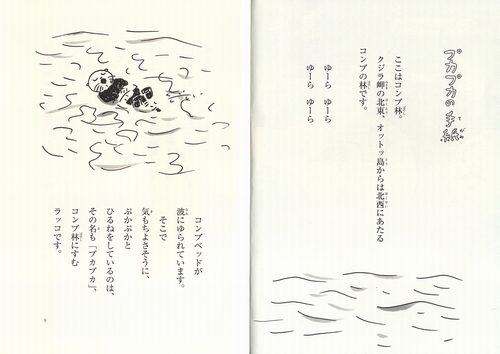 プカプカの手紙
ここはコンブ林。
クジラ岬の北東、オットッ島からは北西にあたる
コンブの林です。
ゆーら　ゆーら
ゆーら　ゆーら
コンブベッドが
波にゆられています。
そこで
気もちよさそうに、
ぷかぷかと
ひるねをしているのは、
その名も「プカプカ」、
コンブ林にすむ
ラッコです。
9